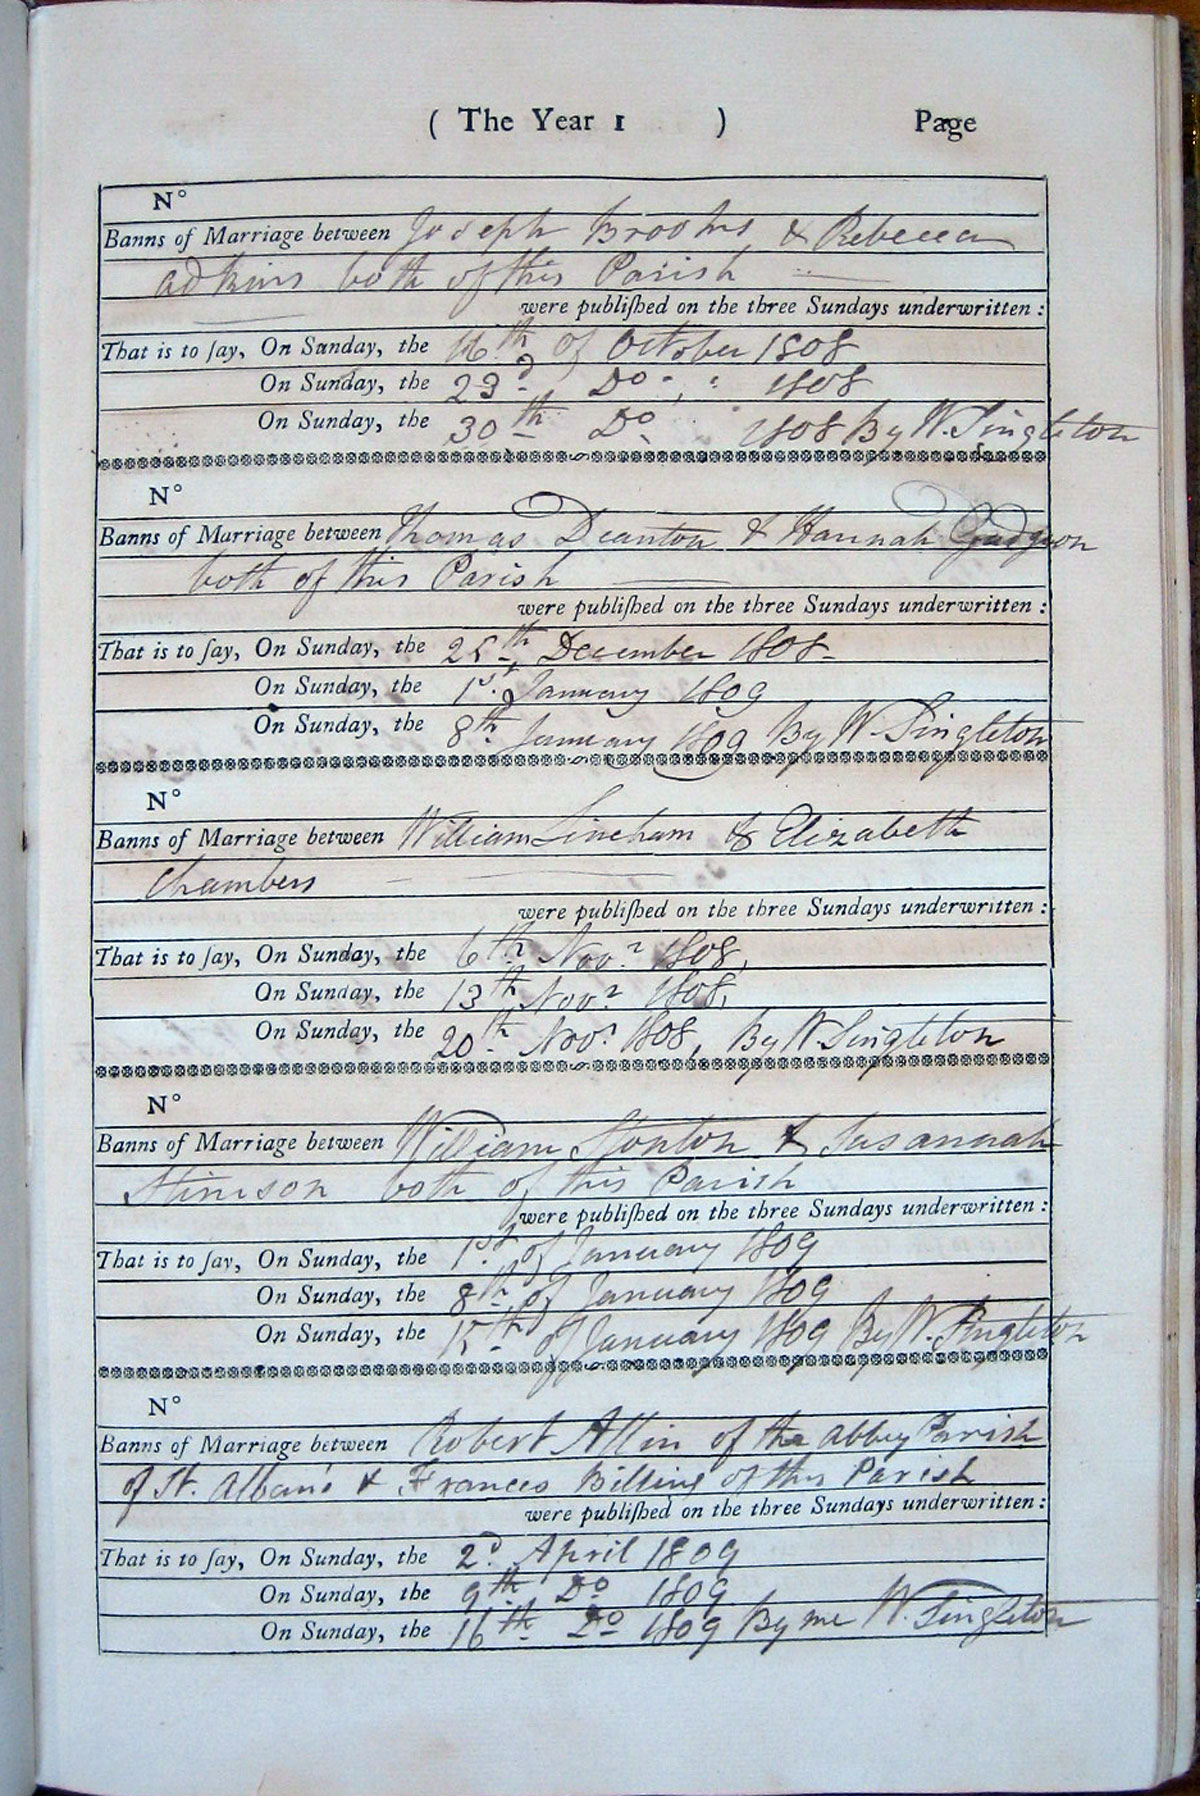 ( The Year 1 ) Page
N°
Banns of Marriage between Joseph Brooks & Rebecca
adkins both of this Parish
were publiſhed on the three Sundays underwritten :
That is to ſay, On Sunday, the 16th of October 1808
On Sunday, the 23d Do 1808
On Sunday, the 30th Do 1808 By W. Singleton
N°
Banns of Marriage between Thomas Deanton & Hannah Gudgeon
both of this Parish
were publiſhed on the three Sundays underwritten :
That is to ſay, On Sunday, the 25th December 1808
On Sunday, the 1st January 1809
On Sunday, the 8th January 1809 By W. Singleton
N°
Banns of Marriage between William Lineham & Elizabeth
Chambers
were publiſhed on the three Sundays underwritten :
That is to ſay, On Sunday, the 6th Novr 1808,
On Sunday, the 13th Novr 1808,
On Sunday, the 20th Novr 1808, By W Singleton
N°
Banns of Marriage between William Stonton & Susannah
Stimson both of this Parish
were publiſhed on the three Sundays underwritten :
That is to ſay, On Sunday, the 1st of January 1809
On Sunday, the 8th of January 1809
On Sunday, the 15th of January 1809 By W. Singleton
N°
Banns of Marriage between Robert Allin of the abbey Parish
of St. Alban's & Frances Billing of this Parish
were publiſhed on the three Sundays underwritten :
That is to ſay, On Sunday, the 2d April 1809
On Sunday, the 9th Do 1809
On Sunday, the 16th Do 1809 By me W. Singleton